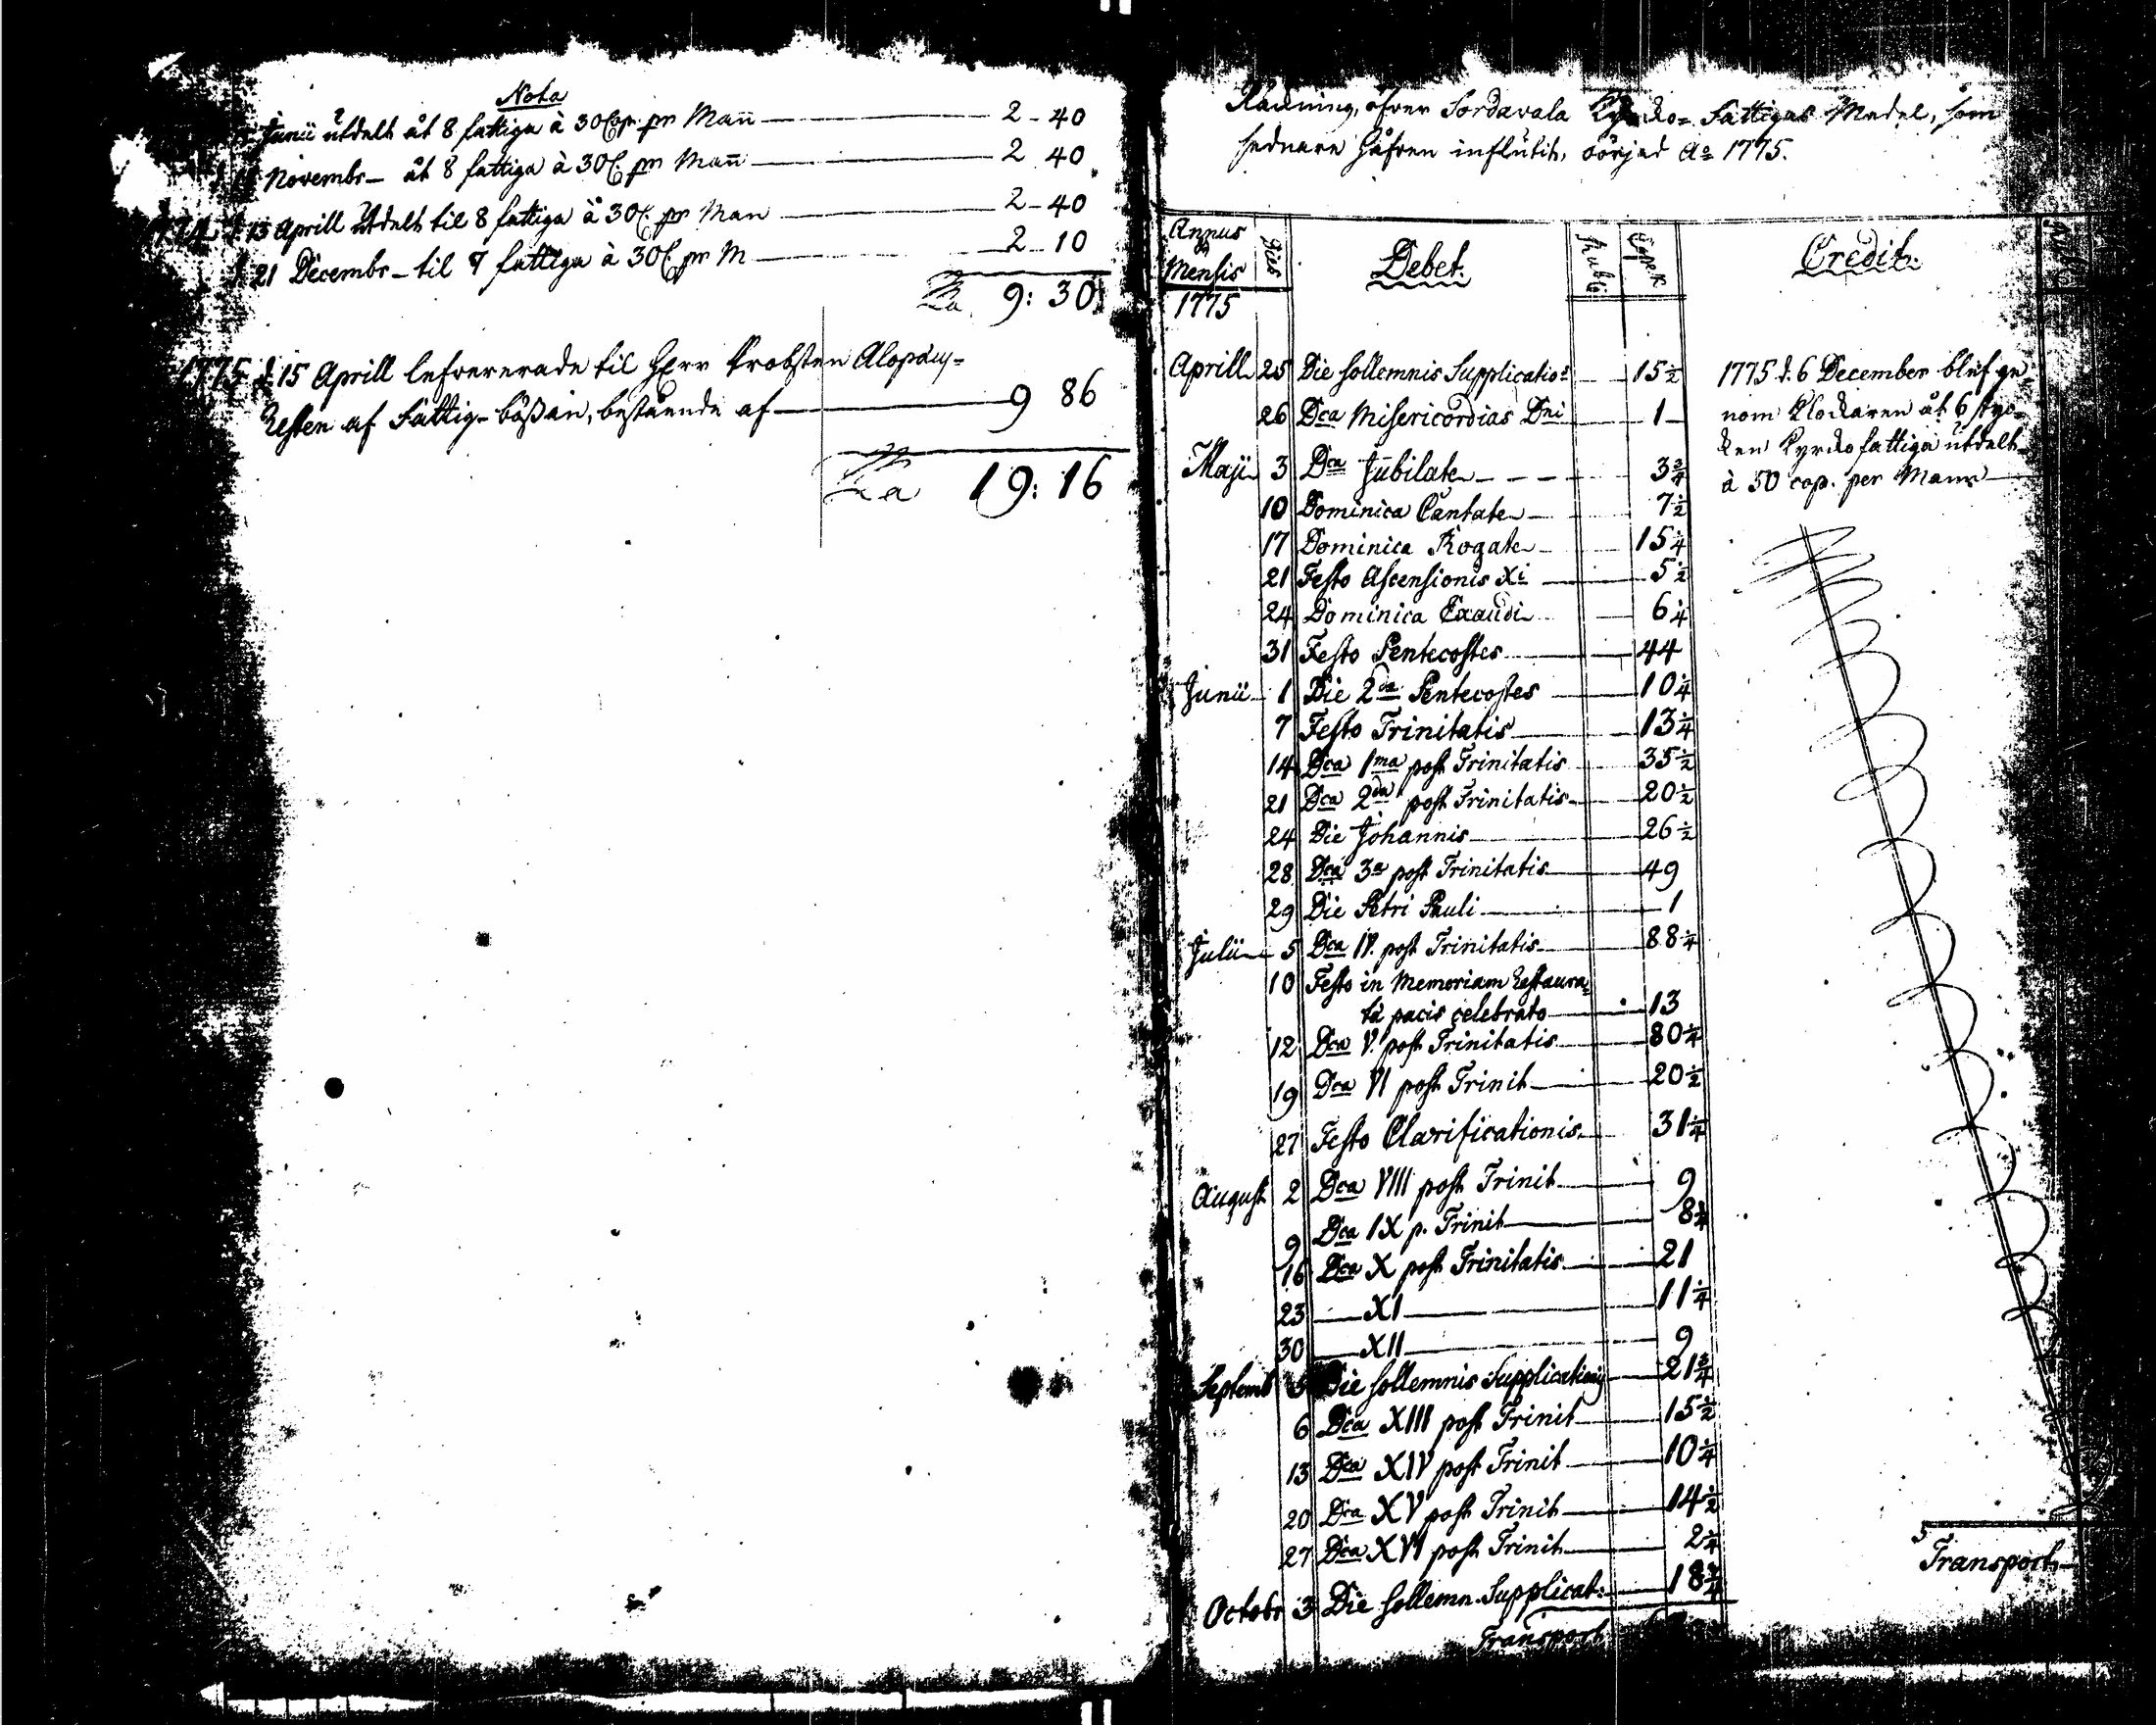 Nota
Junii utdelt åt 8 fattiga à 30 Cop. pr Mañ 2-40
Novembr- åt 8 fattiga à 30 C. pr Mañ 2 40
13 Aprill utdelt til 8 fattiga à 30 C. pr Man 2-40
21 Decembr- til 7 fattiga à 30 C. pr M 2-10
9: 30
1775 d. 15 Aprill lefvererade til Herr Probsten Alopæus
Resten af Fattig-bössan, bestående af 9 86
19: 16
Räkning öfver Sordavala Kyrko-Fattigas Medel, som
sednare håfven influtit, börjad Aº 1775.
Annus & Mensis Dies Debet. Rubl. Copek Credit.
1775
Aprill 25 Die sollemnis Supplicatio: 15 1/2
26 Dca Misericordias Dni 1
Maji 3 Dca Jubilate 3 3/4
10 Dominica Cantate 7 1/2
17 Dominica Rogate 15 1/4
21 Festo Ascensionis Xi 5 1/2
24 Dominica Exaudi 6 1/4
31 Festo Pentecostes 44
Junii 1 Die 2da Pentecostes 10 1/4
7 Festo Trinitatis 13 1/4
14 Dca 1ma post Trinitatis 35 1/2
21 Dca 2da post Trinitatis 20 1/2
24 Die Johannis 26 1/2
28 Dca 3a post Trinitatis 49
29 Die Petri Pauli 1
Julii 5 Dca IV. post Trinitatis 88 1/4
10 Festo in Memoriam Restaura=
tæ pacis celebrato 13
12 Dca V. post Trinitatis 80 1/4
19 Dca VI post Trinit 20 1/2
27 Festo Clarificationis 31 1/4
August 2 Dca VIII post Trinit 9
9 Dca IX p. Trinit 8 1/4
16 Dca X post Trinitatis 21
23 XI 11 1/4
30 XII 9
Septemb 5 Die sollemnis Supplicationis 21 3/4
6 Dca XIII post Trinit 15 1/2
13 Dca XIV post Trinit 10 1/4
20 Dca XV post Trinit 14 1/2
27 Dca XVI post Trinit 2 1/4
Octobr 3 Die sollemn. Supplicat: 18 3/4
Transport
1775 d. 6 December blef ge=
nom Klockaren åt 6 styc=
ken Kyrko fattiga utdelt
à 50 cop. per Mann
Transport